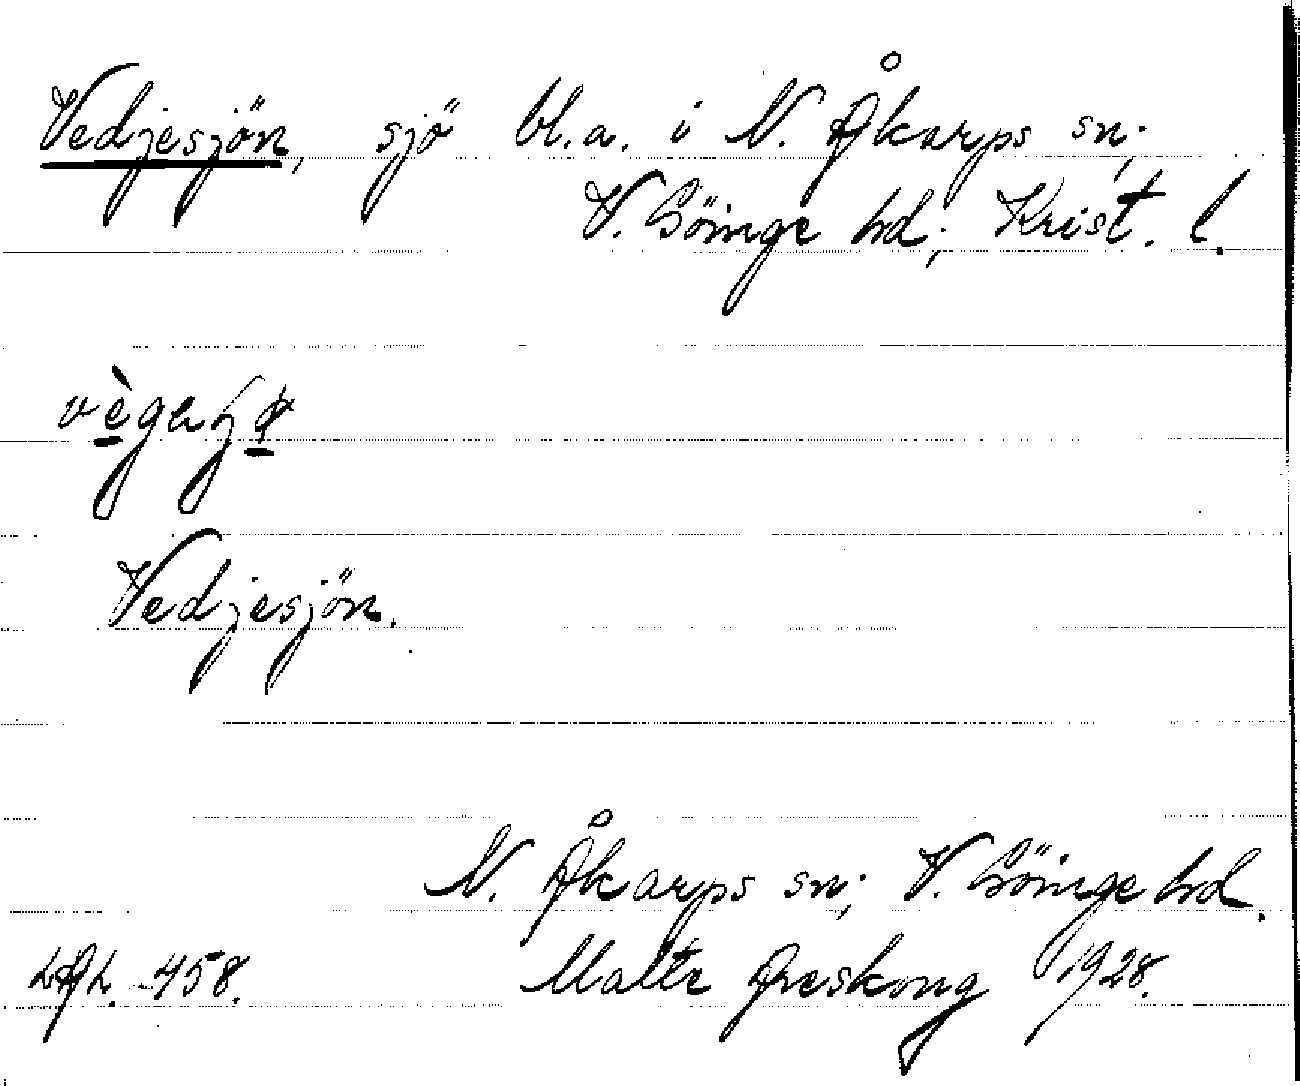 Vedjesjön, sjö bl.a. i N. Åkarps sn;
V. Göinge hd; Krist. l.
Vedjesjön.
N. Åkarps sn; V. Göinge hd.
LAL. 458. Malte Areskoug 1928.